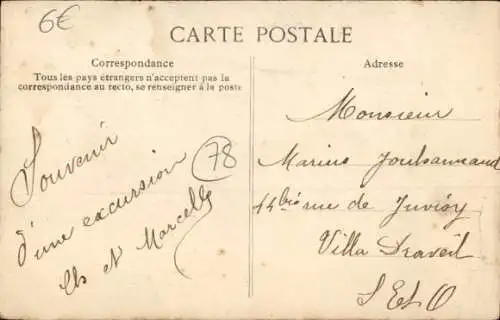 6€
CARTE POSTALE
Correspondance
Tous les pays étrangers n'acceptent pas la
correspondance au recto, se renseigner à la poste
Souvenir
d'une excursion
et Marcelle
78
Adresse
Monsieur
Marius
rue de Juvisy
Villa Draveil
S Et O